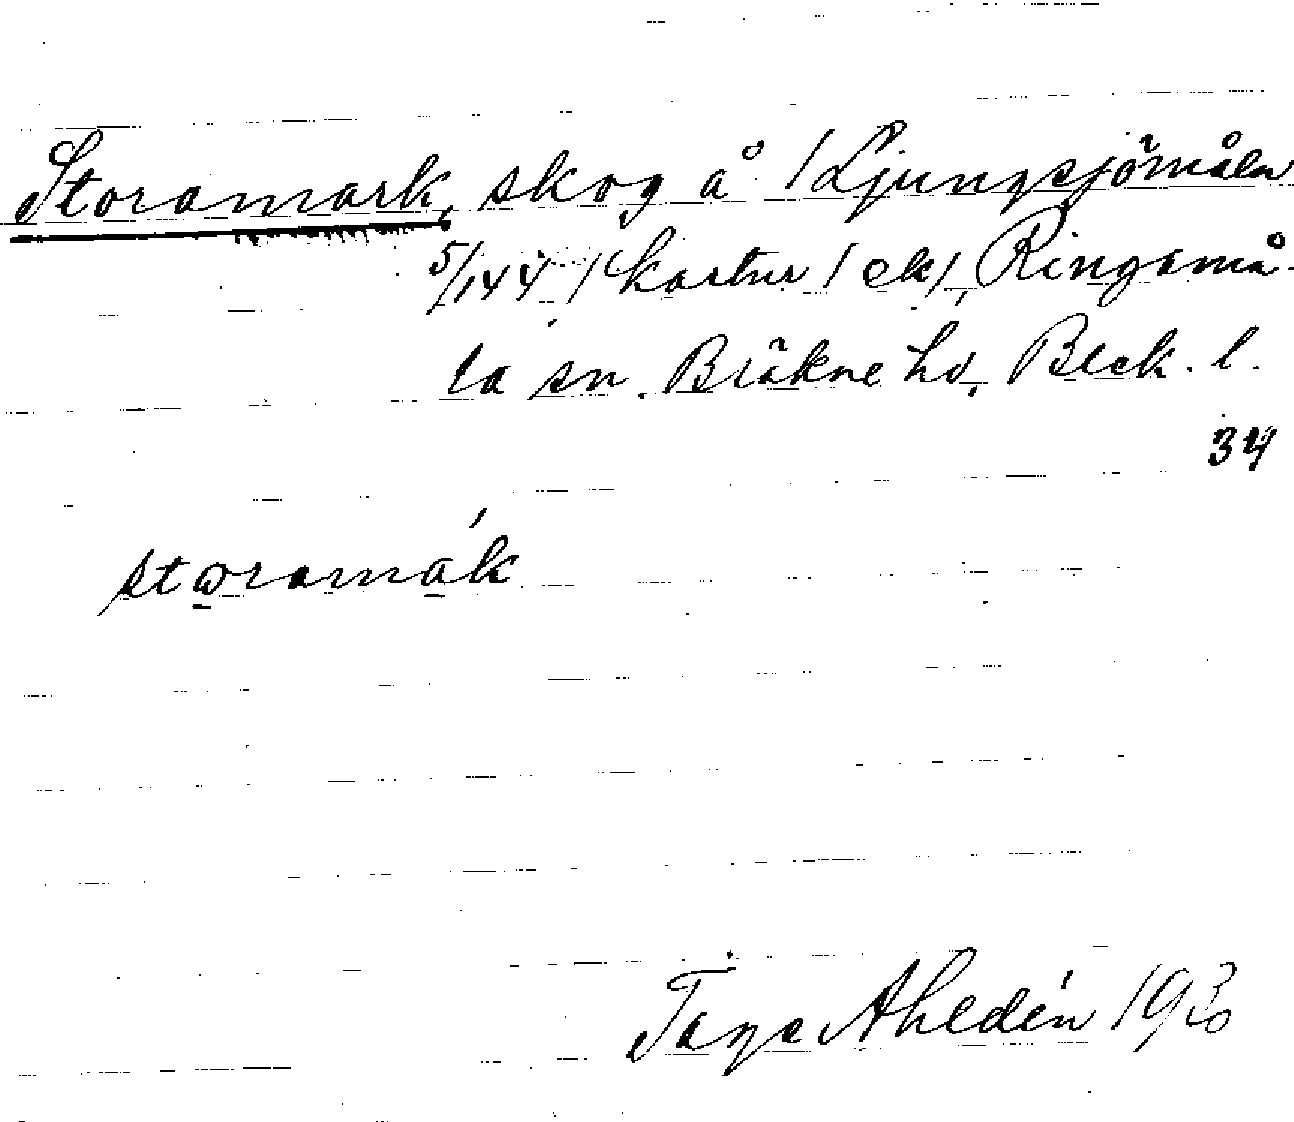 Storamark, skog å /Ljungsjömåla
5/144 / kartur / ek/, Ringamå-
la sn. Bräkne hd, Blek. l.
34
storamák
Tage Ahldén 1930